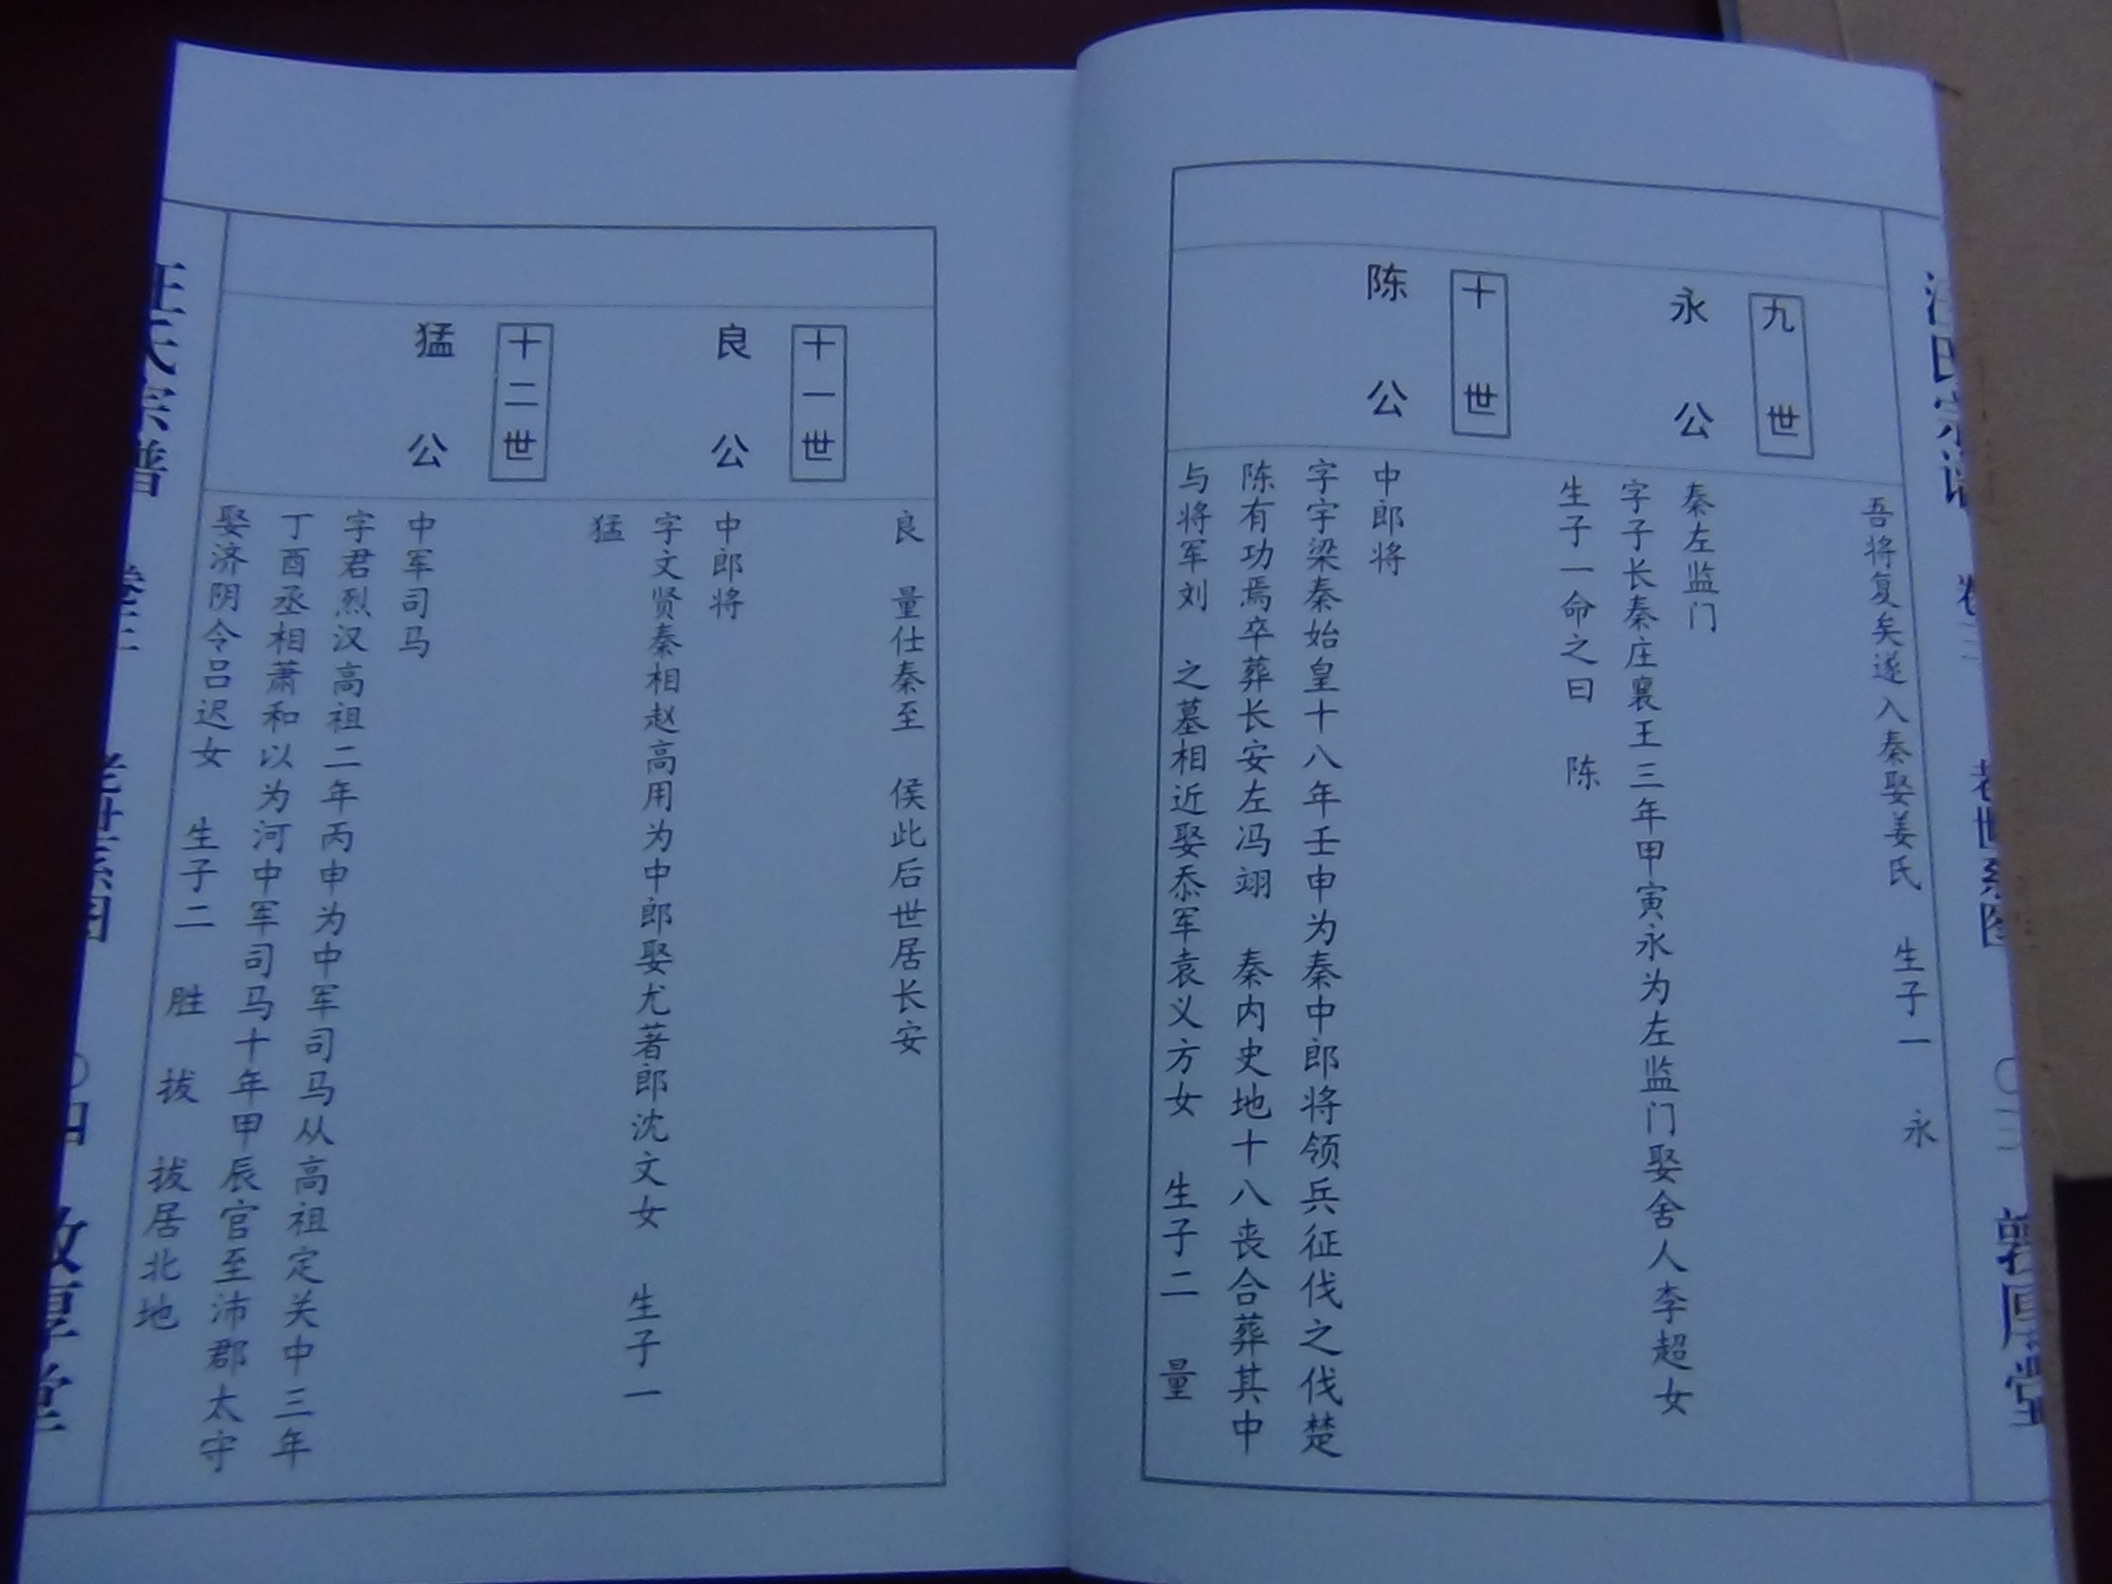 汪氏宗谱 卷三 老世系图 〇三 敦厚堂
吾将复矣遂入秦娶姜氏 生子一 永
九世
永公
秦左监门
字子长秦庄襄王三年甲寅永为左监门娶舍人李超女
生子一命之曰 陈
十世
陈公
中郎将
字宇梁秦始皇十八年壬申为秦中郎将领兵征伐之伐楚
陈有功焉卒葬长安左冯翊 秦内史地十八丧合葬其中
与将军刘 之墓相近娶忝军袁义方女 生子二 量
良 量仕秦至 侯此后世居长安
十一世
良公
中郎将
字文贤秦相赵高用为中郎娶尤著郎沈文女 生子一
猛
十二世
猛公
中军司马
字君烈汉高祖二年丙申为中军司马从高祖定关中三年
丁酉丞相萧和以为河中军司马十年甲辰官至沛郡太守
娶济阴令吕迟女 生子二 胜 拔 拔居北地
汪氏宗谱 卷三 老世系图 〇四 敦厚堂